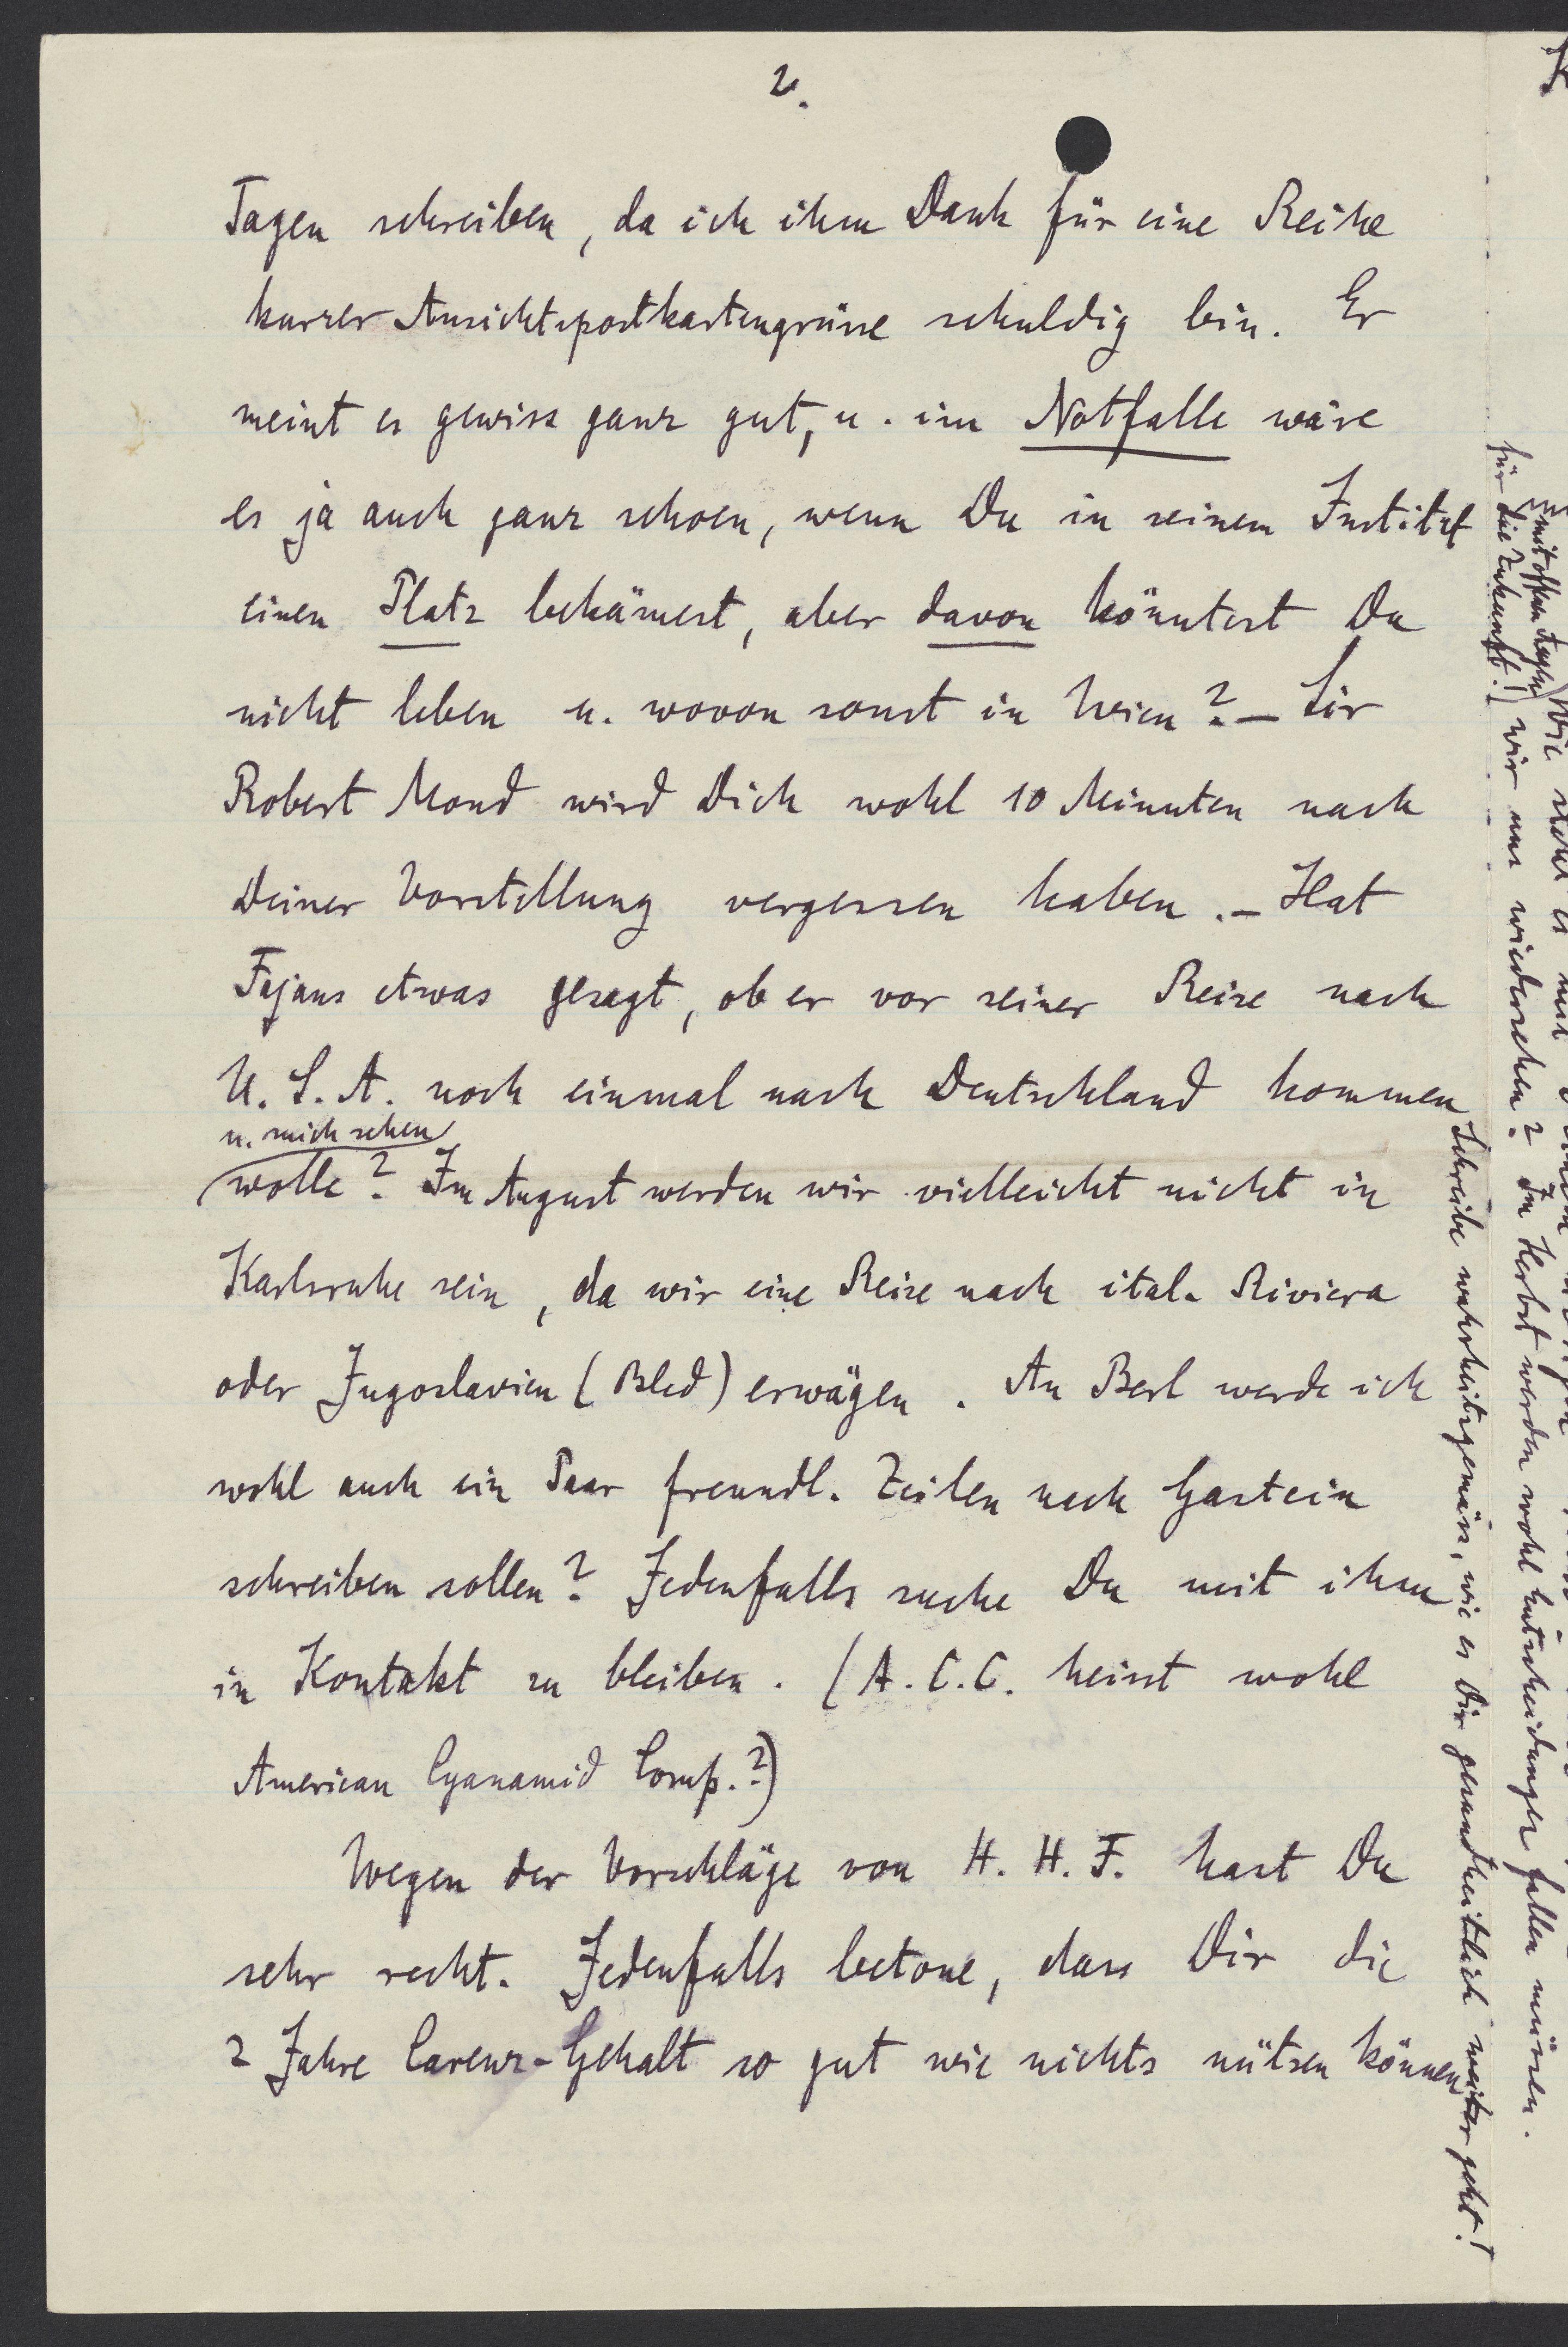 2.
Tagen schreiben, da ich ihm Dank für eine Reihe
kurzer Ansichtspostkartengrüsse schuldig bin. Er
meint es gewiss ganz gut, u. im Notfalle wäre
es ja auch ganz schoen, wenn Du in seinem Institut
einen Platz bekämest, aber davon könntest Du
nicht leben u. wovon sonst in Wien? – Sir
Robert Mond wird Dich wohl 10 Minuten nach
Deiner Vorstellung vergessen haben. – Hat
Fajans etwas gesagt, ob er vor seiner Reise nach
U.S.A. noch einmal nach Deutschland kommen
u. mich sehen
wolle? Im August werden wir vielleicht nicht in
Karlsruhe sein, da wir eine Reise nach ital. Riviera
oder Jugoslavien (Bled) erwägen. An Berl werde ich
wohl auch ein Paar freundl. Zeilen nach Gastein
schreiben sollen? Jedenfalls suche Du mit ihm
in Kontakt zu bleiben. (A.C.C. heisst wohl
American Cyanamid Comp.?)
Wegen der Vorschläge von H. H. F. hast Du
sehr recht. Jedenfalls betone, dass Dir die
2 Jahre Carenz-Gehalt so gut wie nichts nützen können
Schreibe wahrheitsgemäss, wie es Dir gesundheitlich weiter geht!
für die Zukunft!) wir uns wiedersehen? Im Herbst werden wohl Entscheidungen fallen müssen.
mit offen Augen
Wie